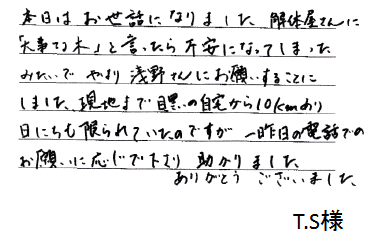 本日はお世話になりました 解体屋さんに
「大事な木」と言ったら不安になってしまった
みたいで やはり浅野さんにお願いすることに
しました 現地まで目黒の自宅から10kmあり
日にちも限られていたのですが 一昨日の電話での
お願いに応じて下さり 助かりました
ありがとう ございました
T.S様